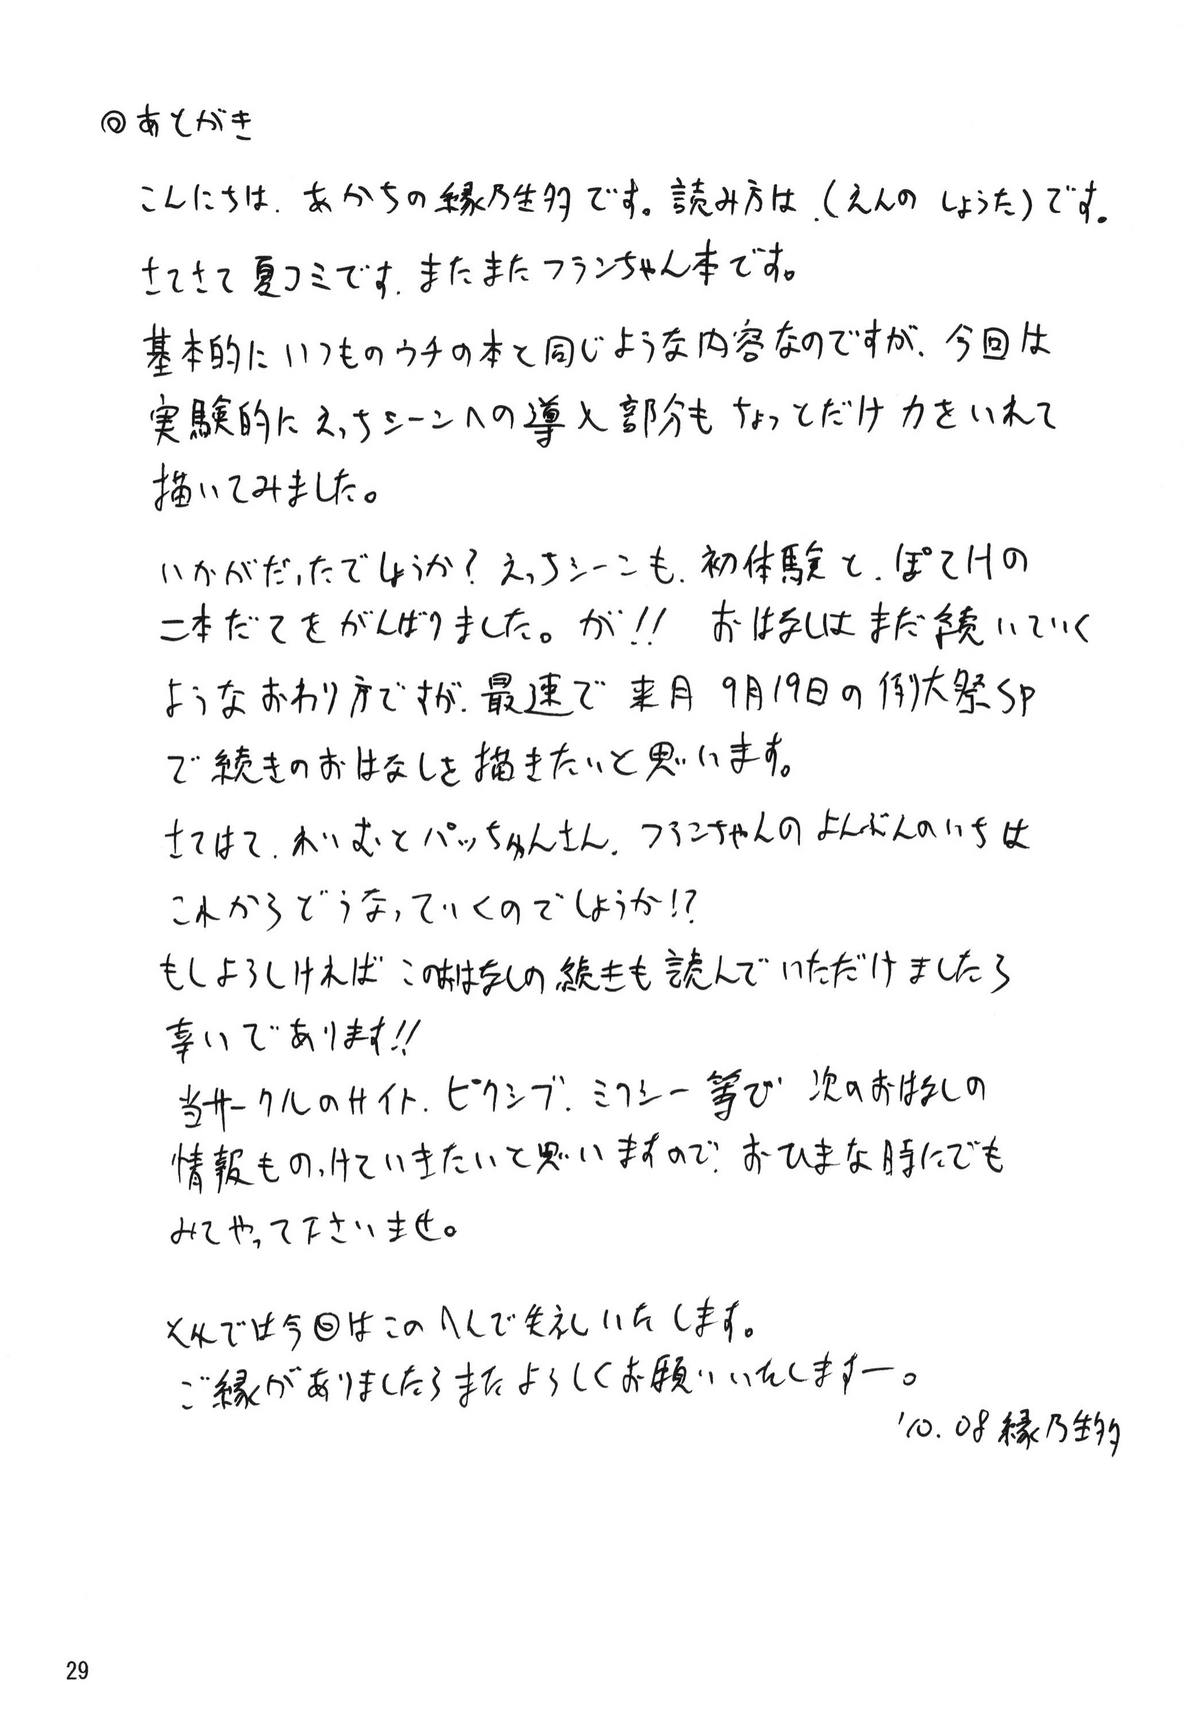 ◎あとがき
こんにちは、あかちの縁乃生多です。読み方は、(えんの しょうた)です。
さてさて夏コミです、またまたフランちゃん本です。
基本的にいつものウチの本と同じような内容なのですが、今回は
実験的にえっちシーンへの導入部分もちょっとだけ力をいれて
描いてみました。
いかがだったでしょうか？えっちシーンも、初体験と、ぽてHの
二本だてをがんばりました。が!! おはなしはまだ続いていく
ようなおわり方ですが、最速で 来月 9月19日の例大祭SP
で続きのおはなしを描きたいと思います。
さてはて、れいむとパッちゅんさん、フランちゃんのよんぶんのいちは
これからどうなっていくのでしょうか!?
もしよろしければこのおはなしの続きも読んでいただけましたら
幸いであります!!
当サークルのサイト、ピクシブ、ミクシー等で 次のおはなしの
情報ものっけていきたいと思いますので、おひまな時にでも
みてやって下さいませ。
それでは今回はこのへんで失礼いたします。
ご縁がありましたらまたよろしくお願いいたしますー。
'10.08縁乃生多
29